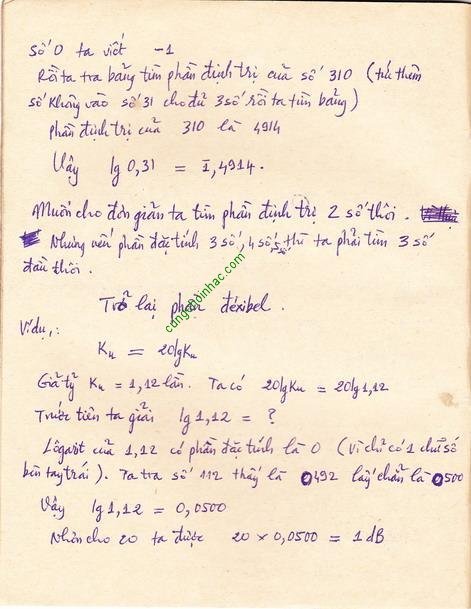 Số 0 ta viết -1
Rồi ta tra bảng tìm phần định trị của số 310 (tức thêm
số không vào số 31 cho đủ 3 số rồi ta tìm bảng)
phần định trị của 310 là 4914
Vậy lg 0,31 = 1̅,4914.
Muốn cho đơn giản ta tìm phần định trị 2 số thôi.
Nhưng nếu phần đặc tính 3 số, 4 số, 5 số thì ta phải tìm 3 số
đầu thôi.
Trở lại phần đéxibel.
Ví dụ,:
Ku = 20lgKu
Giả tỷ Ku = 1,12 lần. Ta có 20lgKu = 20lg1,12
Trước tiên ta giải lg1,12 = ?
Lôgarit của 1,12 có phần đặc tính là 0 (vì chỉ có 1 chữ số
bên tay trái). Ta tra số 112 thấy là 0492 lấy chẵn là 0500
Vậy lg 1,12 = 0,0500
Nhân cho 20 ta được 20 x 0,0500 = 1 dB
cungchoinhac.com